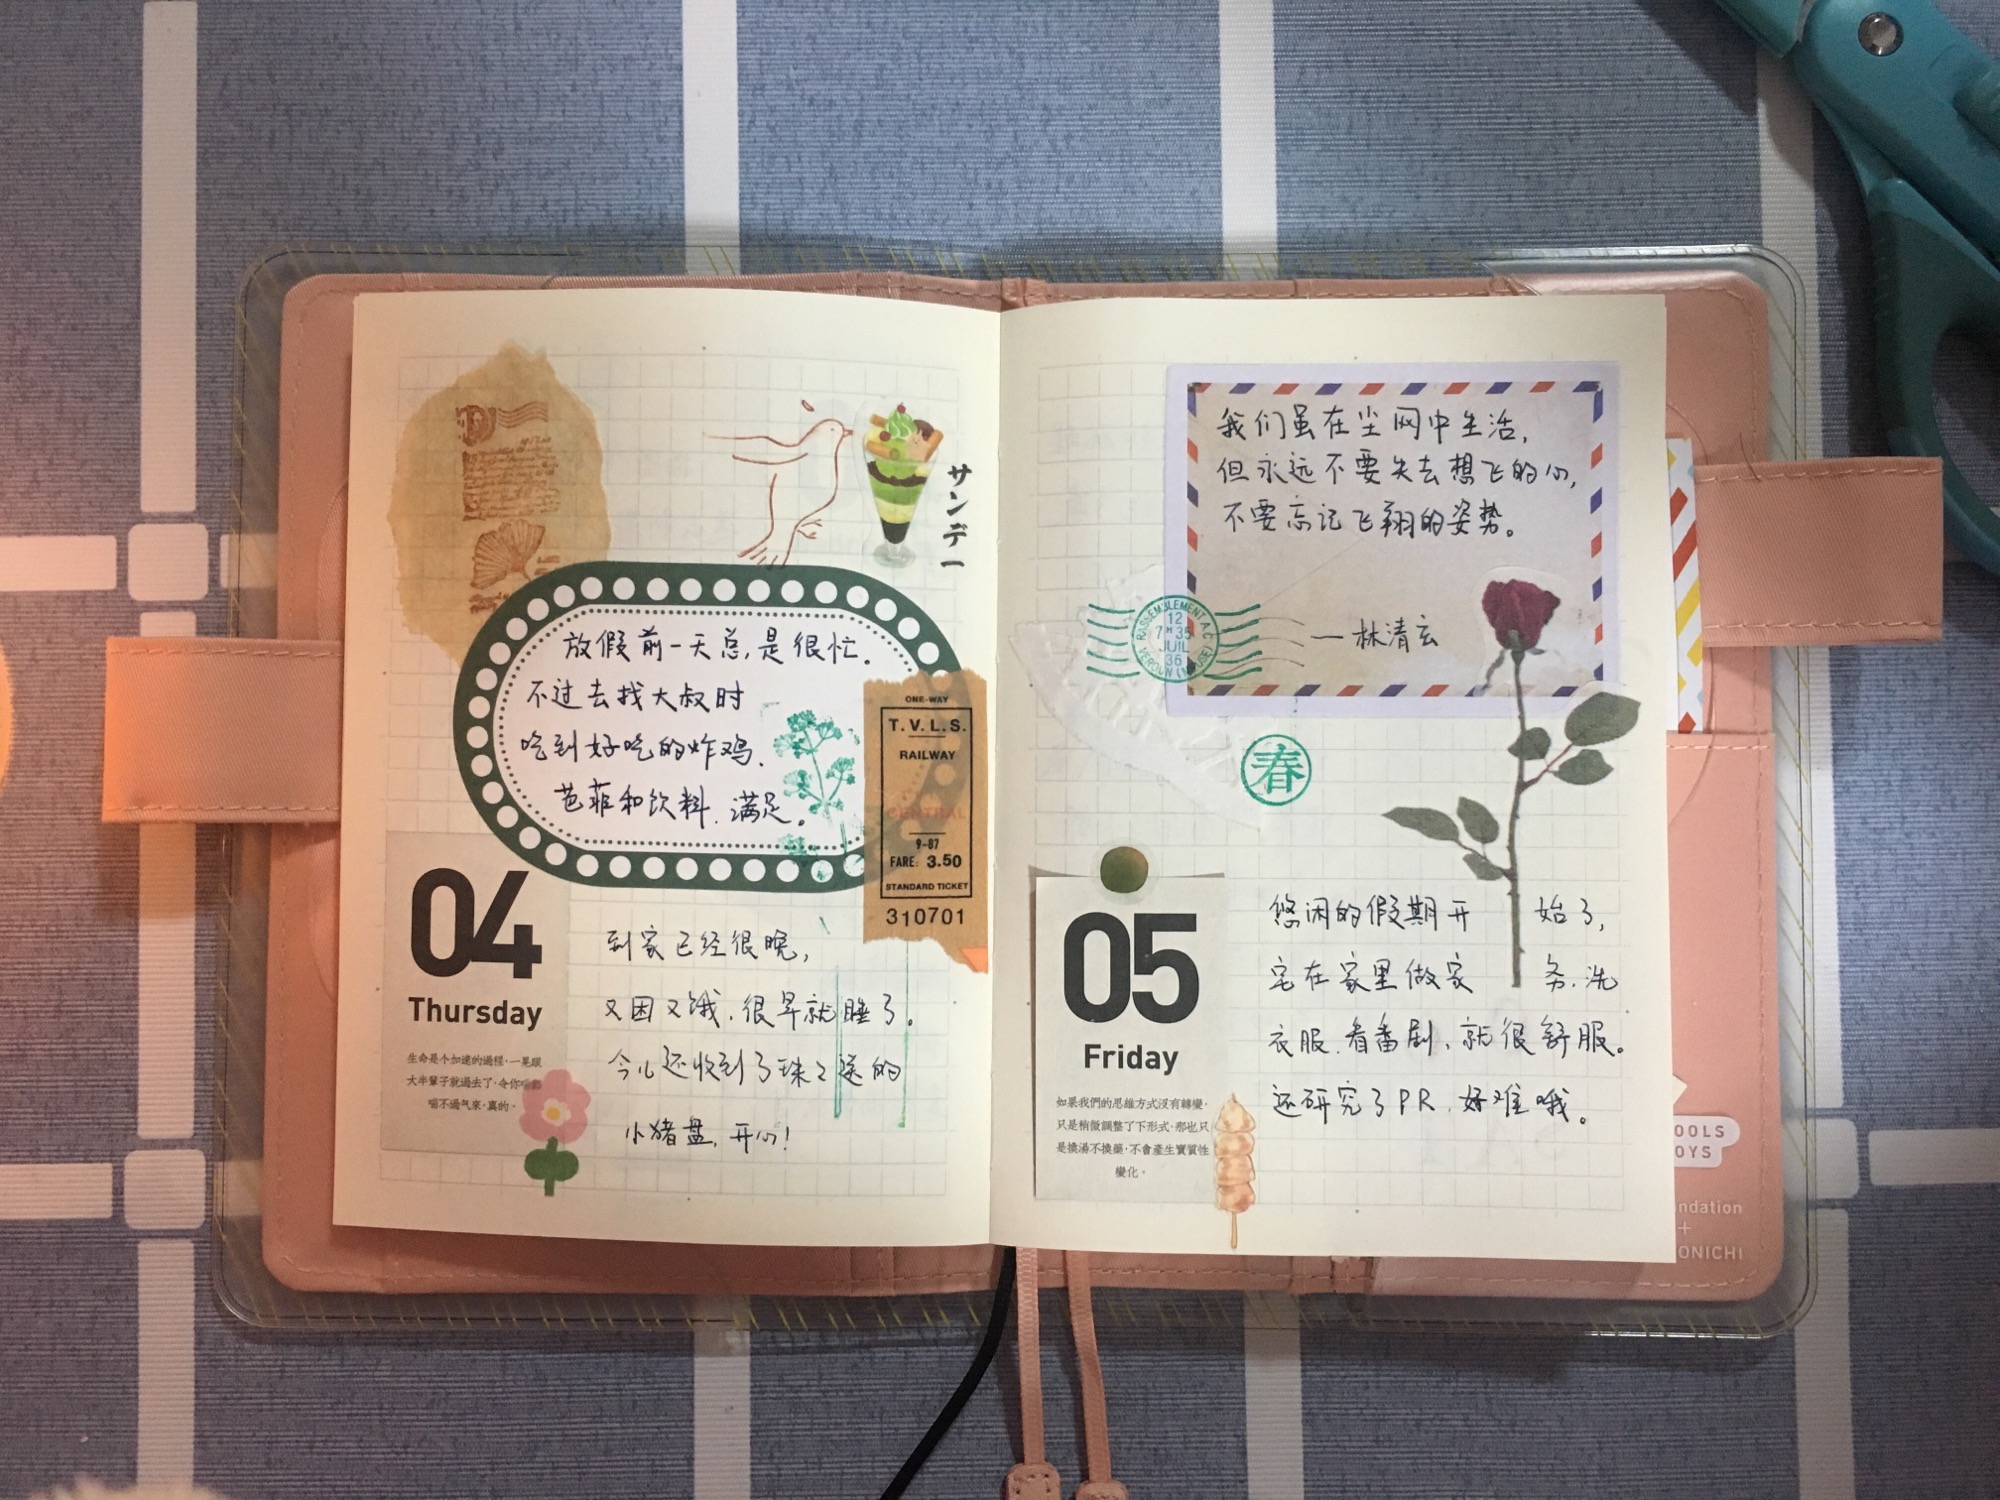 サンデー
放假前一天总是很忙.
不过去找大叔时
吃到好吃的炸鸡.
芭菲和饮料.满足。
ONE-WAY
T.V.L.S.
RAILWAY
CENTRAL
9-87
FARE: 3.50
STANDARD TICKET
310701
04
Thursday
生命是个加速的過程·一晃眼
大半輩子就過去了·令你喘都
喘不過气來·真的·
到家已经很晚,
又困又饿.很早就睡了。
今儿还收到了珠珠送的
小猪盘,开心!
我们虽在尘网中生活,
但永远不要失去想飞的心,
不要忘记飞翔的姿势。
—林清玄
RASSEMBLEMENT A.C
12
7 H 35
JUIL
36
VERDUN (MEUSE)
春
05
Friday
如果我們的思維方式沒有轉變·
只是稍微調整了下形式·那也只
是換湯不換藥·不會產生實質性
變化·
悠闲的假期开 始了,
宅在家里做家 务.洗
衣服.看番剧,就很舒服。
还研究了PR.好难哦。
OOLS
OYS
ndation
+
ONICHI